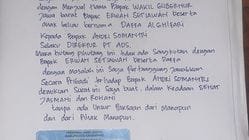 dengan Menjual Nama Bapak WAKIL GUBERNUR
Jawa barat Bapak ERWAN SETIAWAN beserta
anak beliau bernama DAFFA ALGHIFARI
Kepada Bapak ANDES SOMANTRI
Selaku DIREKTUR PT ADS.
Maka hutang piutang ini tidak ada Sangkutan dengan
Bapak ERWAN SETIAWAN beserta Daffa
dengan masalah ini Saya Pertanggung Jawabkan
Secara Pribadi terhadap Bapak ANDES SOMANTRI
demikian Surat ini Saya buat dalam KEADAAN SEHAT
JASMANI dan ROHANI
tanpa ada Unsur Paksaan dari Manapun
dan dari Pihak Manapun.